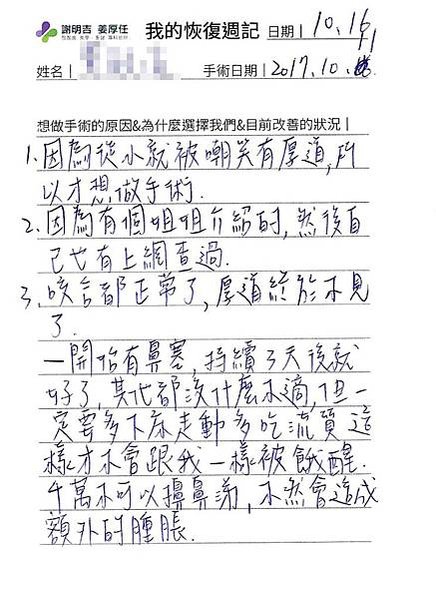 謝明吉 姜厚任 我的恢復週記 日期| 10.16
姓名| 手術日期| 2017.10.11
想做手術的原因&為什麼選擇我們&目前改善的狀況|
1. 因為從小就被嘲笑有厚道, 所
以才想做手術.
2. 因為有個姐姐介紹的, 然後自
己也有上網查過.
3. 咬合都正常了, 厚道終於不見
了.
一開始有鼻塞, 持續3天後就
好了, 其他都沒什麼不適, 但一
定要多下床走動多吃流質這
樣才不會跟我一樣被餓醒.
千萬不可以擤鼻涕, 不然會造成
額外的腫脹.